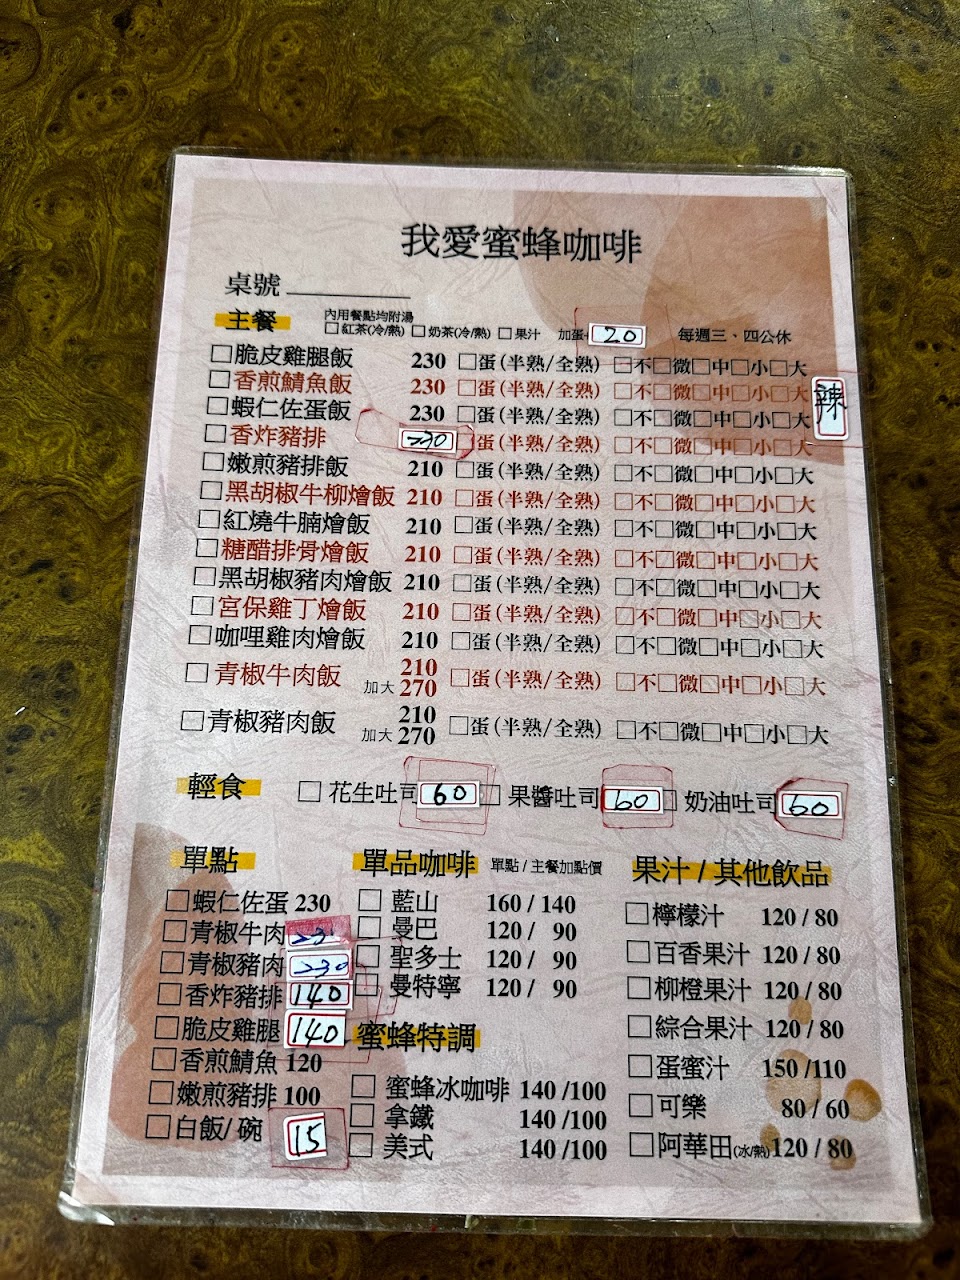 我愛蜜蜂咖啡
桌號
主餐 內用餐點均附湯 □紅茶(冷/熱) □奶茶(冷/熱) □果汁 加蛋+ 20 每週三、四公休
□脆皮雞腿飯 230 □蛋(半熟/全熟) □不□微□中□小□大
□香煎鯖魚飯 230 □蛋(半熟/全熟) □不□微□中□小□大 辣
□蝦仁佐蛋飯 230 □蛋(半熟/全熟) □不□微□中□小□大
□香炸豬排 230 □蛋(半熟/全熟) □不□微□中□小□大
□嫩煎豬排飯 210 □蛋(半熟/全熟) □不□微□中□小□大
□黑胡椒牛柳燴飯 210 □蛋(半熟/全熟) □不□微□中□小□大
□紅燒牛腩燴飯 210 □蛋(半熟/全熟) □不□微□中□小□大
□糖醋排骨燴飯 210 □蛋(半熟/全熟) □不□微□中□小□大
□黑胡椒豬肉燴飯 210 □蛋(半熟/全熟) □不□微□中□小□大
□宮保雞丁燴飯 210 □蛋(半熟/全熟) □不□微□中□小□大
□咖哩雞肉燴飯 210 □蛋(半熟/全熟) □不□微□中□小□大
□青椒牛肉飯 210 加大 270 □蛋(半熟/全熟) □不□微□中□小□大
□青椒豬肉飯 210 加大 270 □蛋(半熟/全熟) □不□微□中□小□大
輕食 □花生吐司 60 □果醬吐司 60 □奶油吐司 60
單點
□蝦仁佐蛋 230
□青椒牛肉
□青椒豬肉 230
□香炸豬排 140
□脆皮雞腿 140
□香煎鯖魚 120
□嫩煎豬排 100
□白飯/碗 15
單品咖啡 單點/主餐加點價
□藍山 160 / 140
□曼巴 120 / 90
□聖多士 120 / 90
□曼特寧 120 / 90
蜜蜂特調
□蜜蜂冰咖啡 140 /100
□拿鐵 140 /100
□美式 140 /100
果汁 / 其他飲品
□檸檬汁 120 / 80
□百香果汁 120 / 80
□柳橙果汁 120 / 80
□綜合果汁 120 / 80
□蛋蜜汁 150 /110
□可樂 80 / 60
□阿華田(冰/熱) 120 / 80